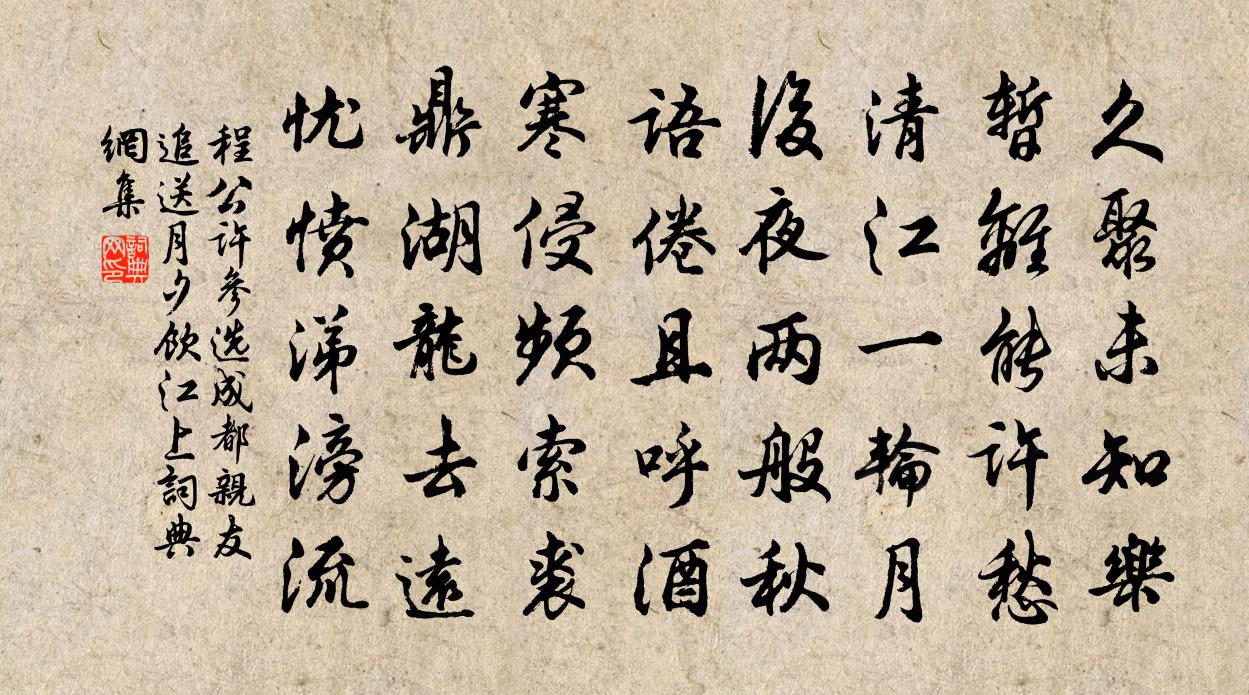 久聚未知樂
暫離能許愁
清江一輪月
後夜两般秋
語倦且呼酒
寒侵頻索裘
鼎湖龍去遠
忧憤涕滂流
程公许參选成都親友
追送月夕飲江上詞典
網集
詞典网印